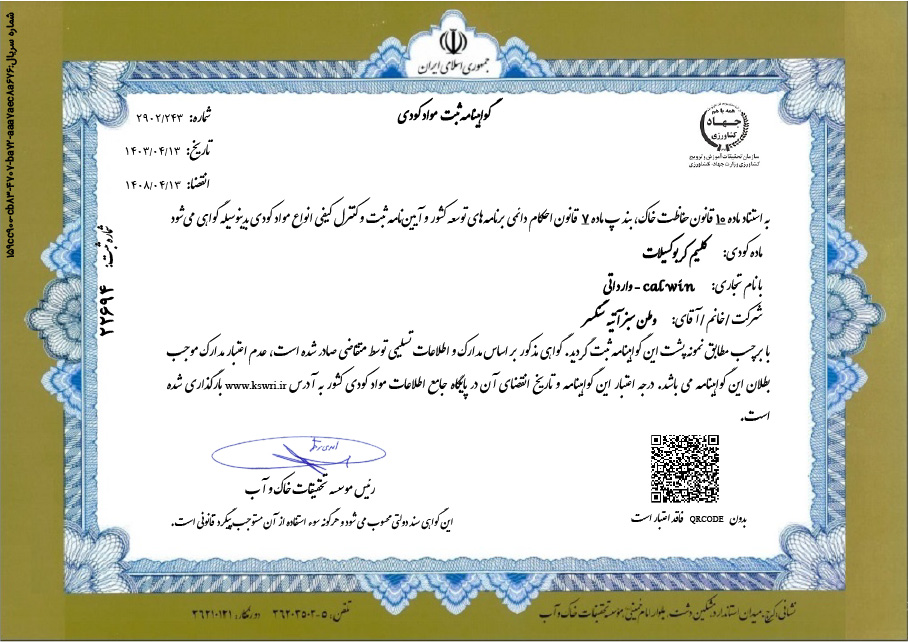 جمهوری اسلامی ایران
گواهینامه ثبت مواد کودی
شماره: ۲۹۰۲/۲۴۳
تاریخ: ۱۴۰۳/۰۴/۱۳
انقضا: ۱۴۰۸/۰۴/۱۳
همه با هم
جهاد
کشاورزی
سازمان تحقیقات، آموزش و ترویج
کشاورزی وزارت جهاد کشاورزی
به استناد ماده ۱۰ قانون حفاظت خاک، بند پ ماده ۷ قانون احکام دائمی برنامه های توسعه کشور و آیین نامه ثبت و کنترل کیفی انواع مواد کودی بدینوسیله گواهی می شود
ماده کودی: کلیم کربوکسیلات
با نام تجاری: calwin - وارداتی
شرکت / خانم / آقای: وطن سبز آتیه سنگسر
با برچسب مطابق نمونه پشت این گواهینامه ثبت گردید. گواهی مذکور بر اساس مدارک و اطلاعات تسلیمی توسط متقاضی صادر شده است، عدم اعتبار مدارک موجب
بطلان این گواهینامه می باشد. درجه اعتبار این گواهینامه و تاریخ انقضای آن در پایگاه جامع اطلاعات مواد کودی کشور به آدرس www.kswri.ir بارگذاری شده
است.
شماره ثبت: ۲۲۶۹۴
رئیس موسسه تحقیقات خاک و آب
این گواهی سند دولتی محسوب می شود و هرگونه سوء استفاده از آن مستوجب پیگرد قانونی است.
بدون QRCODE فاقد اعتبار است
نشانی: کرج، میدان استاندارد، مشکین دشت، بلوار امام خمینی، موسسه تحقیقات خاک و آب
تلفن: ۵-۳۶۲۰۳۵۰۳ دورنگار: ۳۶۲۱۰۱۲۱
شماره سریال: